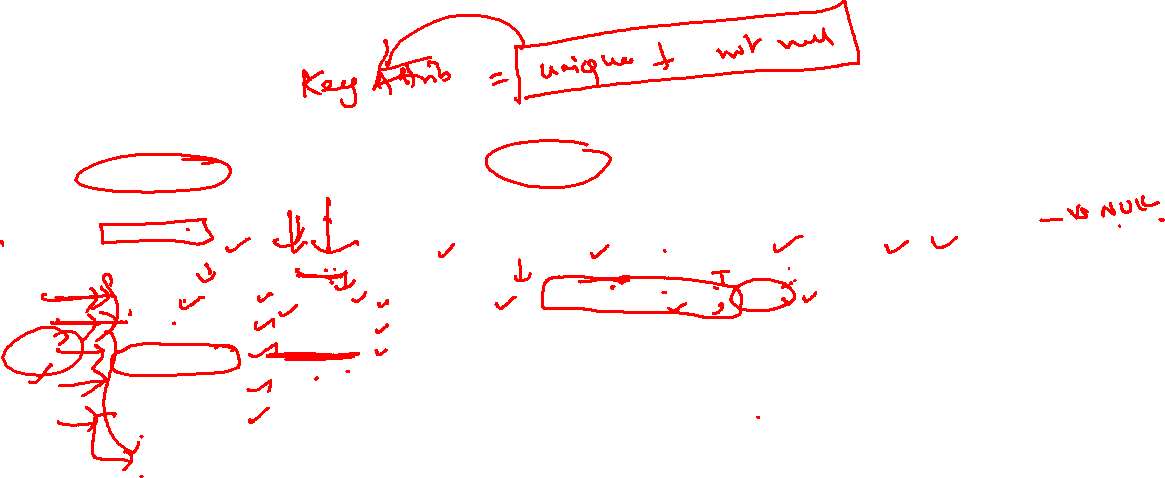 Key Attrib = unique + not null
NULL